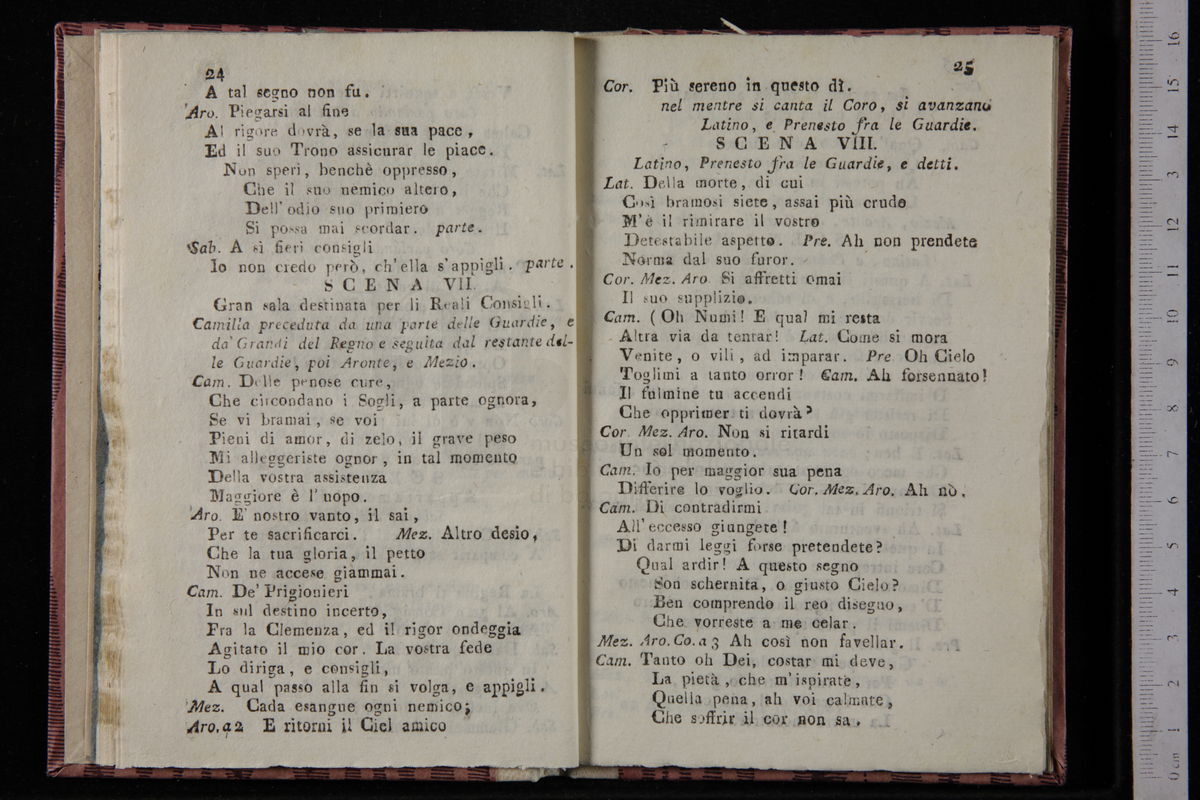 24
A tal segno non fu.
Aro. Piegarsi al fine
Al rigore dovrà, se la sua pace,
Ed il suo Trono assicurar le piace.
Non speri, benchè oppresso,
Che il suo nemico altero,
Dell' odio suo primiero
Si possa mai scordar. parte.
Sab. A sì fieri consigli
Io non credo però, ch' ella s' appigli. parte.
SCENA VII.
Gran sala destinata per li Reali Consigli.
Camilla preceduta da una parte delle Guardie, e
da' Grandi del Regno e seguita dal restante del-
le Guardie, poi Aronte, e Mezio.
Cam. Delle penose cure,
Che circondano i Sogli, a parte ognora,
Se vi bramai, se voi
Pieni di amor, di zelo, il grave peso
Mi alleggeriste ognor, in tal momento
Della vostra assistenza
Maggiore è l' uopo.
Aro. E' nostro vanto, il sai,
Per te sacrificarci. Mez. Altro desìo,
Che la tua gloria, il petto
Non ne accese giammai.
Cam. De' Prigionieri
In sul destino incerto,
Fra la Clemenza, ed il rigor ondeggia
Agitato il mio cor. La vostra fede
Lo diriga, e consigli,
A qual passo alla fin si volga, e appigli.
Mez. Cada esangue ogni nemico;
Aro. a 2 E ritorni il Ciel amico
25
Cor. Più sereno in questo dì.
nel mentre si canta il Coro, si avanzano
Latino, e Prenesto fra le Guardie.
SCENA VIII.
Latino, Prenesto fra le Guardie, e detti.
Lat. Della morte, di cui
Così bramosi siete, assai più crudo
M' è il rimirare il vostro
Detestabile aspetto. Pre. Ah non prendete
Norma dal suo furor.
Cor. Mez. Aro Si affretti omai
Il suo supplizio.
Cam. (Oh Numi! E qual mi resta
Altra via da tentar! Lat. Come si mora
Venite, o vili, ad imparar. Pre Oh Cielo
Toglimi a tanto orror! Cam. Ah forsennato!
Il fulmine tu accendi
Che opprimer ti dovrà?
Cor. Mez. Aro. Non si ritardi
Un sol momento.
Cam. Io per maggior sua pena
Differire lo voglio. Cor. Mez. Aro. Ah nò.
Cam. Di contradirmi
All' eccesso giungete!
Di darmi leggi forse pretendete?
Qual ardir! A questo segno
Son schernita, o giusto Cielo?
Ben comprendo il reo disegno,
Che vorreste a me celar.
Mez. Aro. Co. a 3 Ah così non favellar.
Cam. Tanto oh Dei, costar mi deve,
La pietà, che m' ispirate,
Quella pena, ah voi calmate,
Che soffrir il cor non sa.
0 cm 1 2 3 4 5 6 7 8 9 10 11 12 13 14 15 16